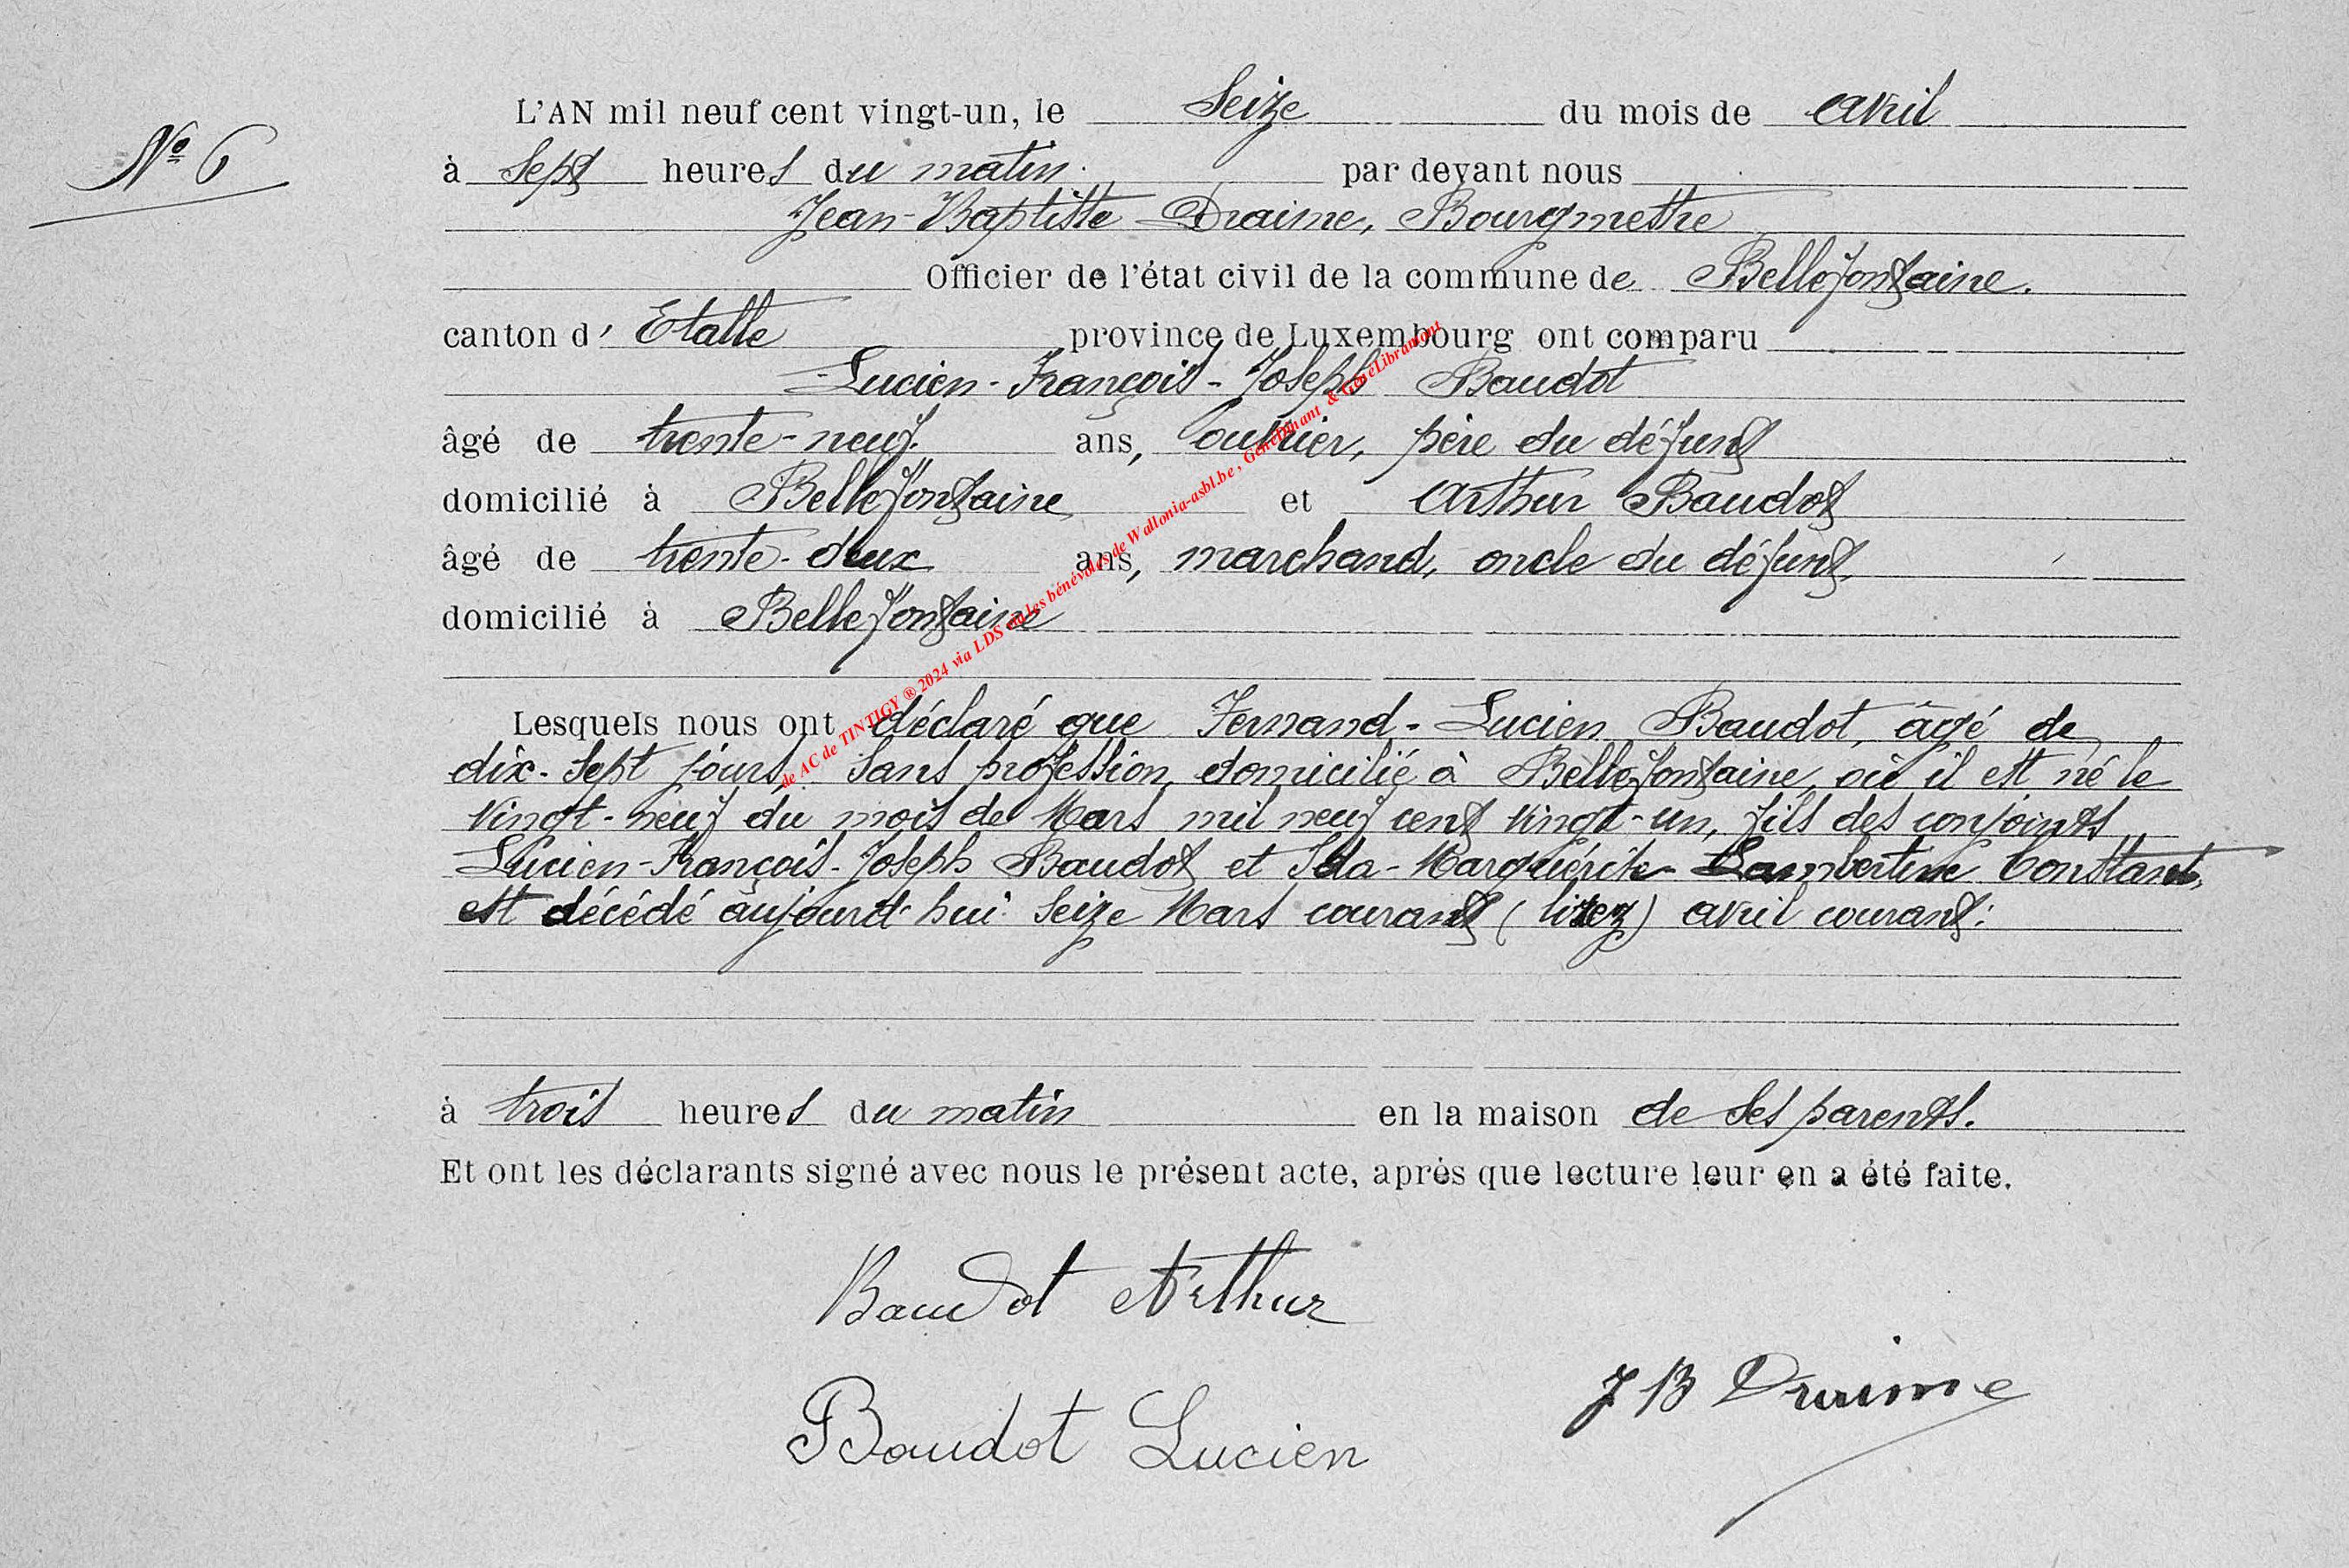 N° 6
L'AN mil neuf cent vingt-un, le Seize du mois de avril
à Sept heures du matin. par devant nous
Jean-Baptiste Draime, Bourgmestre
Officier de l'état civil de la commune de Bellefontaine.
canton d' Etalle province de Luxembourg ont comparu
Lucien-François-Joseph Baudot
âgé de trente-neuf ans, ouvrier, père du défunt
domicilié à Bellefontaine et Arthur Baudot
âgé de trente-deux ans, marchand, oncle du défunt,
domicilié à Bellefontaine
Lesquels nous ont déclaré que Fernand-Lucien Baudot, âgé de
dix-sept jours, sans profession, domicilié à Bellefontaine, où il est né le
vingt-neuf du mois de Mars mil neuf cent vingt-un, fils des conjoints
Lucien-François-Joseph Baudot et Ida-Marguérite-Lambertine Constant,
est décédé aujourd'hui seize Mars courant (lisez) avril courant:
à trois heures du matin en la maison de ses parents.
Et ont les déclarants signé avec nous le présent acte, après que lecture leur en a été faite.
Baudot Arthur
J B Draime
Baudot Lucien
de AC de TINTIGY ® 2024 via LDS les bénévoles de Wallonia-asbl.be, GénéDinant & GénéLibramont